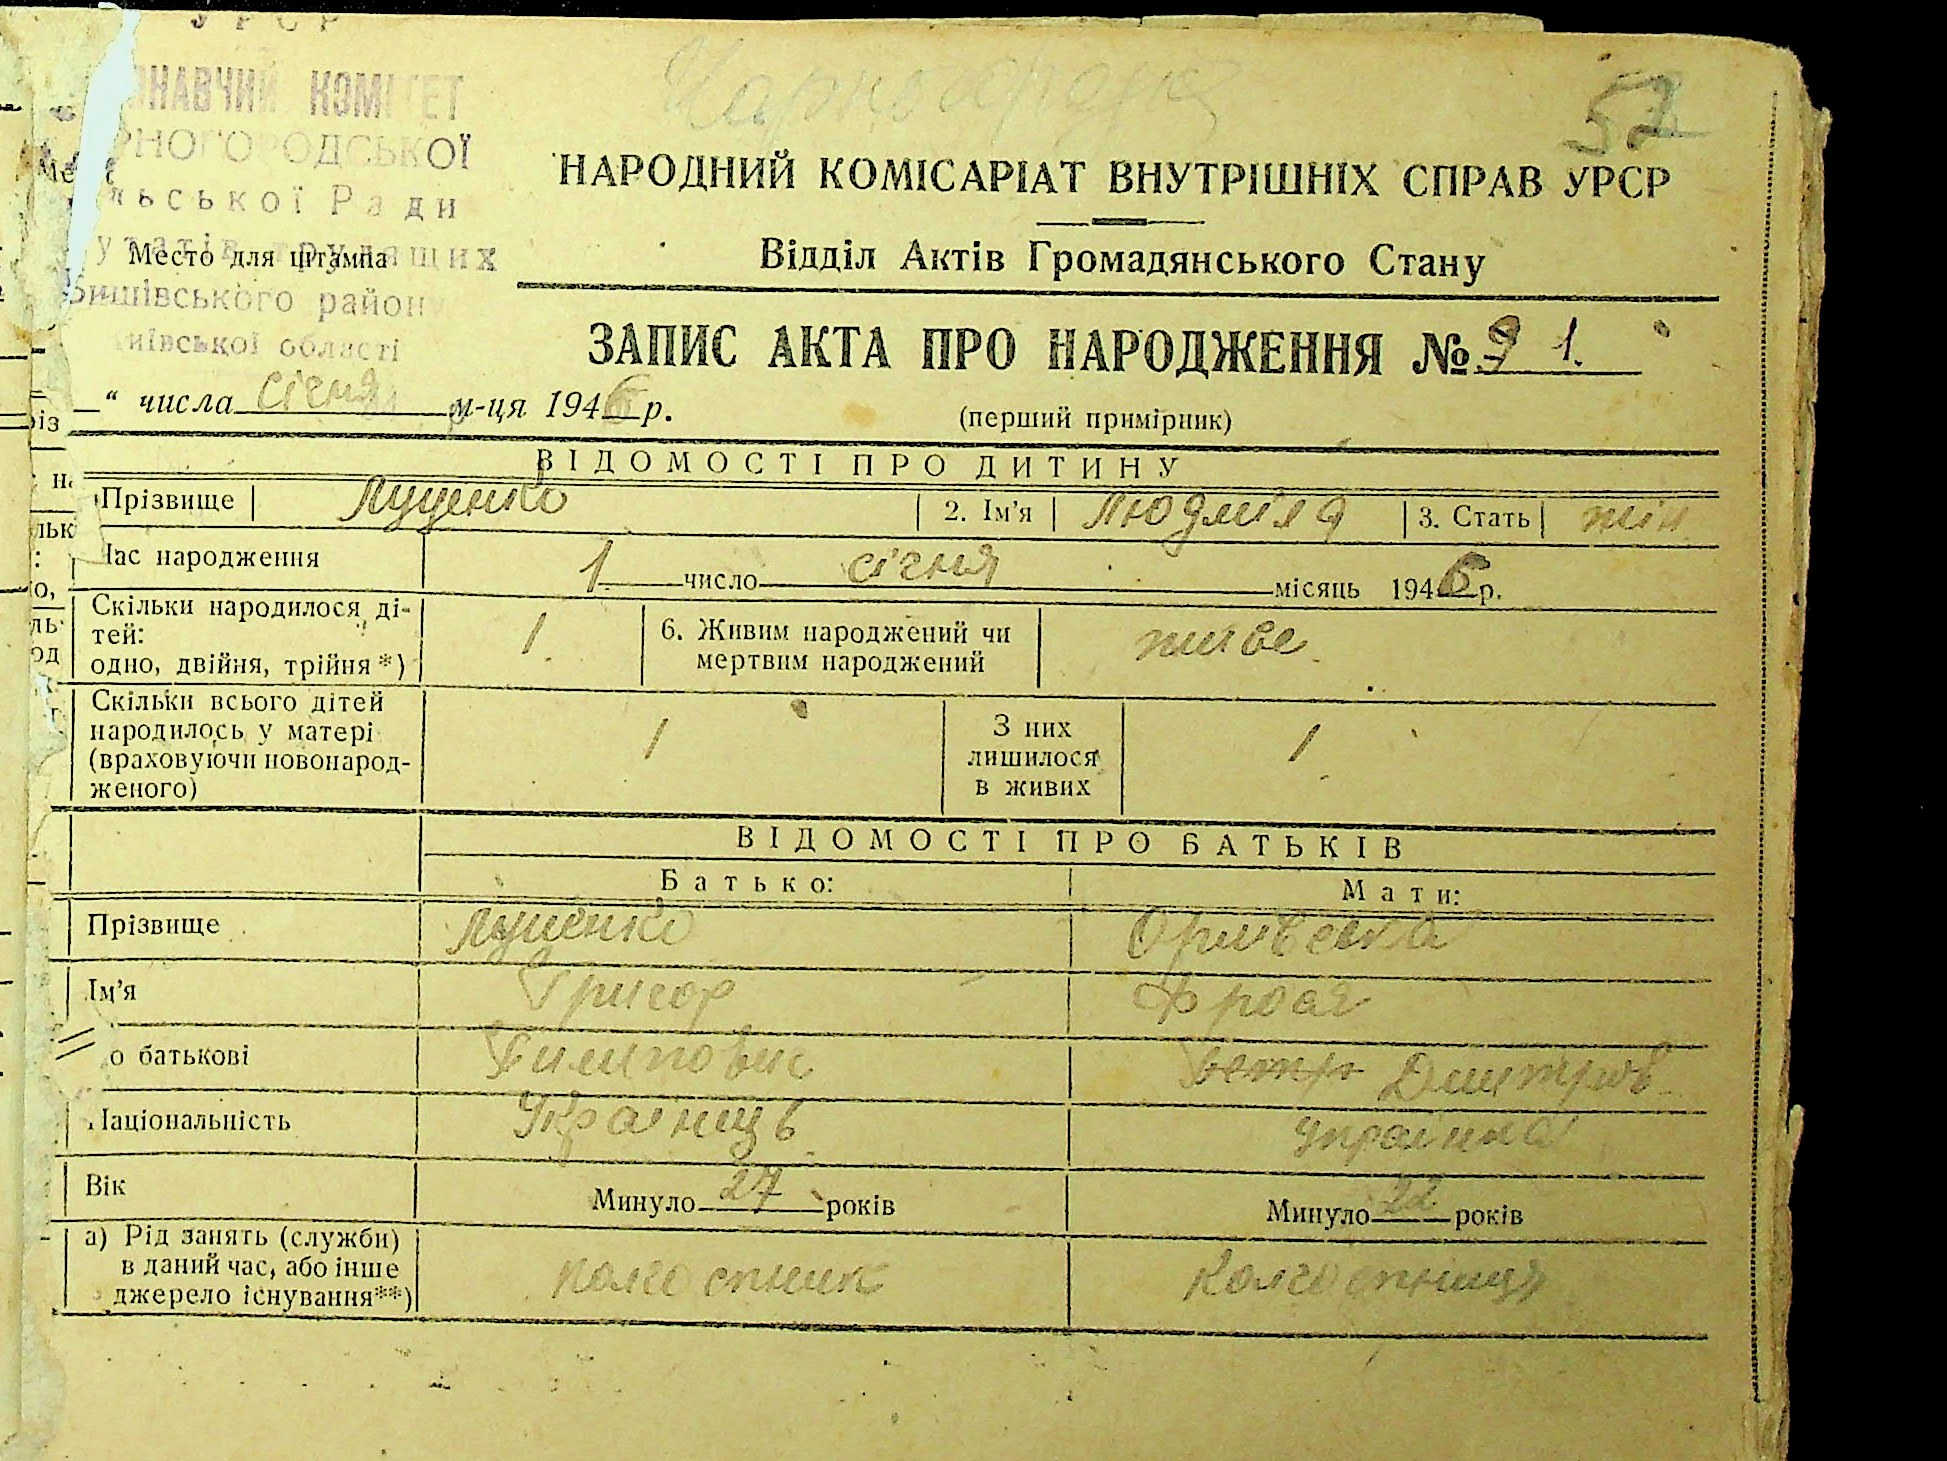 УРСР
ОНАВЧИЙ КОМІТЕТ
РНОГОРОДСЬКОЇ
льської Ради
утатів трудящих
Место для штампа
ишівського район
иївської області
57
НАРОДНИЙ КОМІСАРІАТ ВНУТРІШНІХ СПРАВ УРСР
Відділ Актів Громадянського Стану
ЗАПИС АКТА ПРО НАРОДЖЕННЯ № 1.
“ числа січня м-ця 1946 р.
(перший примірник)
ВІДОМОСТІ ПРО ДИТИНУ
Прізвище Луценко 2. Ім'я Людмила 3. Стать жін
Час народження 1 число січня місяць 1946 р.
Скільки народилося ді-
тей:
одно, двійня, трійня*) 1. 6. Живим народжений чи
мертвим народжений живе
Скільки всього дітей
народилось у матері
(враховуючи новонарод-
женого) 1 З них
лишилося
в живих 1
ВІДОМОСТІ ПРО БАТЬКІВ
Батько: Мати:
Прізвище Луценко
Ім'я Григор
о батькові Дмитрів
Національність Українць Українка
Вік Минуло 27 років Минуло 22 років
а) Рід занять (служби)
в даний час, або інше
джерело існування**) колгоспник колгоспниця